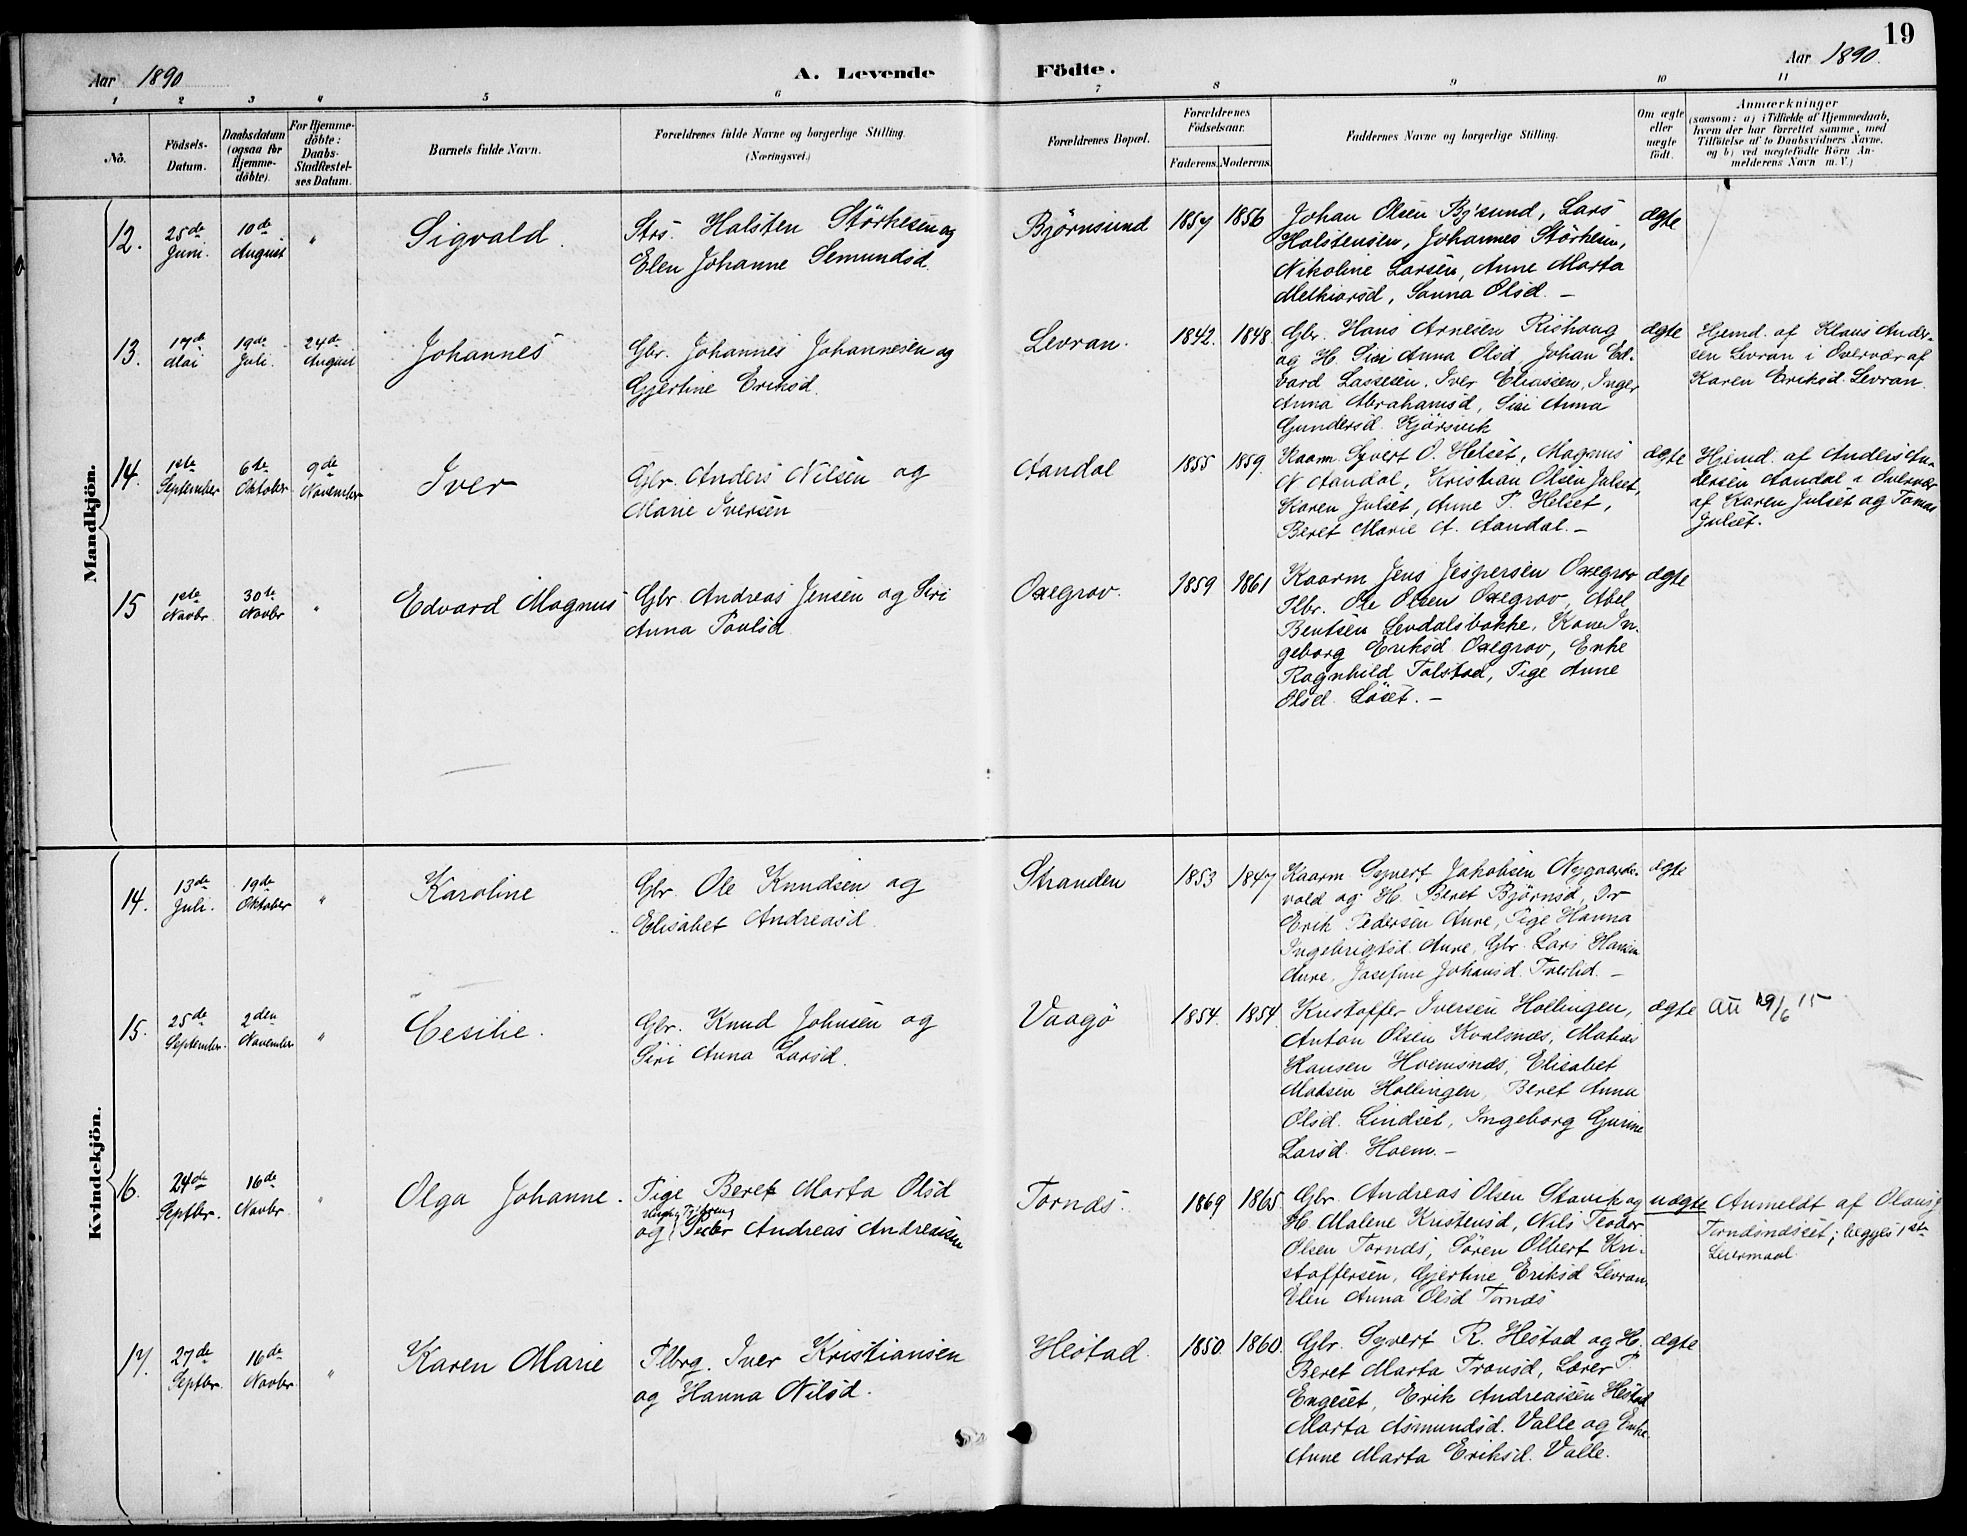 19
Aar 1890
A. Levende
Födte.
Aar 1890.
1 2 3 4 5 6 7 8 9 10 11
No.
Födsels-
Datum.
Daabsdatum
(ogsaa for
Hjemme-
döbte).
For Hjemme-
döbte:
Daabs-
Stadfæstel-
ses Datum.
Barnets fulde Navn.
Forældrenes fulde Navne og borgerlige Stilling.
(Næringsvei.)
Forældrenes Bopæl.
Forældrenes
Födselsaar.
Faderens. Moderens.
Faddernes Navne og borgerlige Stilling.
Om ægte
eller
uægte
födt.
Anmærkninger
(saasom: a) i Tilfælde af Hjemmedaab,
hvem der har forrettet samme, med
Tilföielse af to Daabsvidners Navne,
og b) ved uægtefödte Börn An-
melderens Navn m. V.)
Mandkjön.
12.
25de
Juni.
10de
August
"
Sigvald.
Strs. Halsten Störkesen og
Elen Johanne Semundsd.
Bjørnsund
1857
1856
Johan Olsen Bj'sund, Lars
Halstensen, Johannes Störkesen,
Nikoline Larsen, Anne Marta
Melkiorsd, Sanna Olsd. —
ægte
13.
17de
Mai
19de
Juli.
24de
August
Johannes
Gbr. Johannes Johannesen og
Gjertine Eriksd.
Levran.
1842.
1848.
Gbr. Hans Arnesen Rishoug
og H. Siri Anna Olsd, Johan Ed-
vard Lassesen, Iver Eliassen, Inger
Anna Abrahamsd, Siri Anna
Gundersd. Kjörsvik
ægte
Hjemd. af Klaus Ander-
sen Levran i Overvær af
Karen Eriksd. Levran.
14.
1ste
September
6te
Oktober
9de
November
Iver
Gbr. Anders Nilsen og
Marie Iversen
Aandal
1855
1859.
Kaarm. Syvert O. Helset, Magnus
N Aandal, Kristian Olsen Julset,
Karen Julset, Anne P. Helset,
Beret Marie A. Aandal. —
ægte
Hjemd. af Anders An-
dersen Aandal i Overvær
af Karen Julset og Tomas
Julset.
15
1ste
Novbr.
30te
Novbr
"
Edvard Magnus
Gbr. Andreas Jensen og Siri
Anna Paulsd
Oxegrov.
1859
1861
Kaarm Jens Jespersen Oxegrov
Kbr. Ole Olsen Oxegrov, Abel
Bentsen Levdalsbakke, Kone In-
geborg Eriksd Oxegrov, Enke
Ragnhild Talstad, Pige Anne
Olsd. Löset. —
ægte
Kvindekjön.
14.
13de
Juli.
19de
Oktober
"
Karoline
Gbr. Ole Knudsen og
Elisabet Andreasd.
Stranden
1853
1847
Kaarm. Syvert Jakobsen Nygaards-
vold og H. Beret Bjørnsd, Dr
Erik Pedersen Aure, Pige Hanna
Ingebrigtsd. Aure, Gbr. Lars Hansen
Aure, Josefine Johansd. Tverlid. —
ægte
15.
25de
September.
2den
November
"
Cesilie.
Gbr. Knud Johnsen og
Siri Anna Larsd.
Vaagö
1854.
1854.
Kristoffer Iversen Hollingen,
Anton Olsen Kvalsnæs, Matias
Hansen Hoemsnæs, Elisabet
Madsen Hollingen, Beret Anna
Olsd. Lindset, Ingeborg Gurine
Larsd. Hoem. —
ægte
Att 29/6 15
16.
24de
Septbr.
16de
Novbr.
"
Olga Johanne.
Pige Beret Marta Olsd
og Peder Andreas Andreasen
Tornæs.
1869
1865
Gbr. Andreas Olsen Stavik og
H. Malene Kristensd, Nils Teodor
Olsen Tornæs, Sören Olbert Kri-
stoffersen, Gjertine Eriksd Levran,
Elen Anna Olsd Tornæs
uægte
Anmeldt af Olaus J.
Tornæsnæset; begges 1ste
Leiermaal.
17.
27de
Septbr.
16de
Novbr.
"
Karen Marie
Plbrg. Iver Kristiansen
og Hanna Nilsd.
Hestad.
1850.
1860.
Gbr. Syvert R. Hestad og H.
Beret Marta Tronsd, Lærer P.
Engeset, Erik Andreassen Hestad
Marta Asmundsd. Valle og Enke
Anne Marta Eriksd. Valle.
ægte